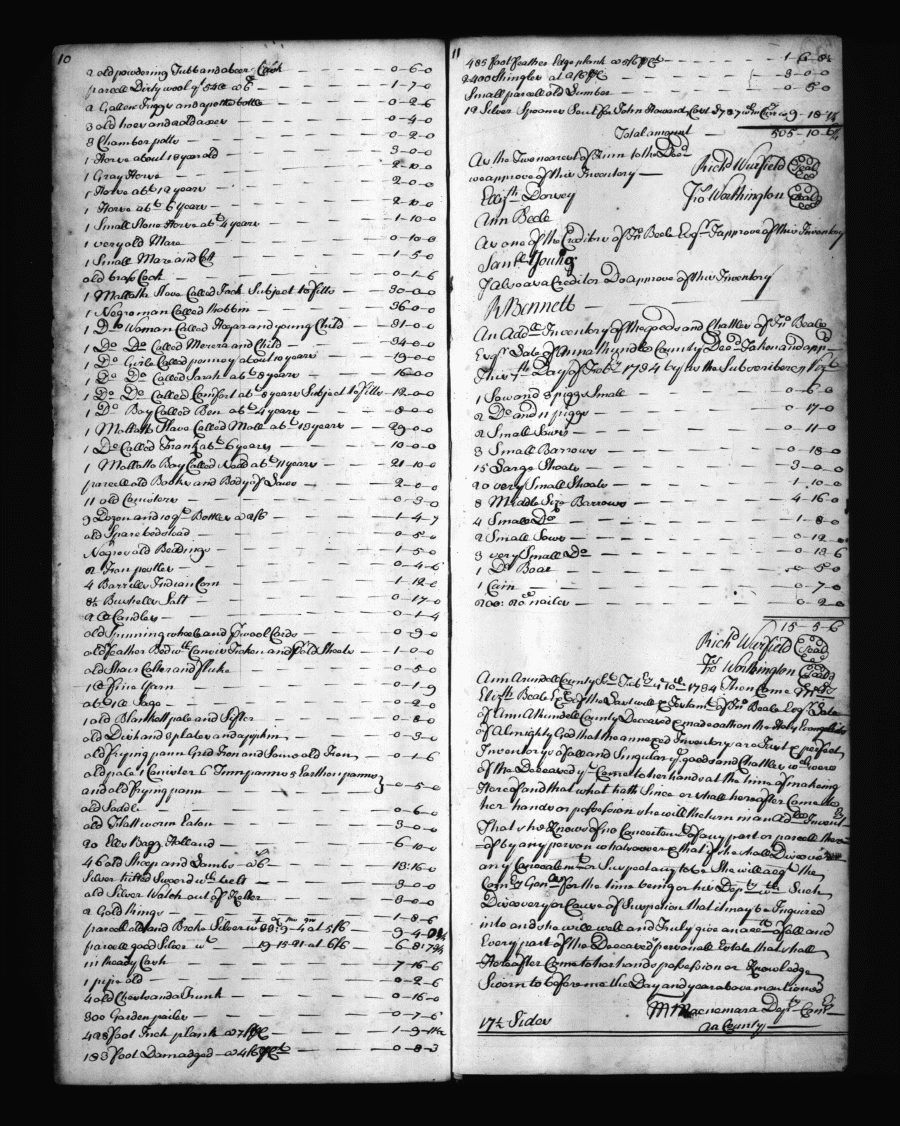 10
2 old powdering Tubbs and a beer Cask — 0-6-0
parcell Dirty wool qt 54lb @ 6d — 1-7-0
2 Gallon Juggs and a pottle bottle — 0-2-6
3 old hoes and 2 old axes — 0-4-0
3 Chamber potts — 0-2-0
1 Horse about 18 year old — 3-0-0
1 Gray Horse — 2-10-0
1 Horse abt 12 years — 2-0-0
1 Horse abt 6 years — 2-10-0
1 Small Stone Horse abt 4 years — 1-10-0
1 very old Mare — 0-10-0
1 Small Mare and Colt — 1-5-0
old brass Cock — 0-1-6
1 Mallatto Slave Called Jack Subject to fitts — 30-0-0
1 Negro man Called Robbin — 36-0-0
1 Do Woman Called Hagar and young Child — 31-0-0
1 Do Do Called Merera and Child — 34-0-0
1 Do Girle Called penney about 10 years — 19-0-0
1 Do Do Called Sarah abt 8 years — 16-0-0
1 Do Do Called Comfort abt 8 years Subject to fitts — 12-0-0
1 Do Boy Called Ben abt 4 years — 8-0-0
1 Mallatto Slave Called Moll abt 18 years — 29-0-0
1 Do Called Frank abt 6 years — 10-0-0
1 Mallatto Boy Called Nedd abt 11 years — 21-10-0
parcell old Books and Body of Laws — 2-0-0
11 old Canisters — 0-3-0
9 Dozen and 10 qt Bottles @ 2/6 — 1-4-7
old Spare bedstead — 0-5-0
Negros old Beddings — 1-5-0
2 Iron pestles — 0-4-6
4 Barrells Indian Corn — 1-12-0
8½ Bushells Salt — 0-17-0
2 lb Candles — 0-1-4
old Spinning wheels and pr wool Cards — 0-9-0
old Feather Bed wth Canvis Ticken and pr old Sheets — 1-0-0
old Share Colter and fluke — 0-5-0
1 lb fine Yarn — 0-1-9
abt 1 lb Sago — 0-2-0
1 old Blankett pale and Sifter — 0-8-0
old Dish and 2 plates and apipkin — 0-3-0
old frying pann Grid Iron and Some old Iron — 0-1-6
old pale 1 Canister 6 Tinn panns 5 Earthen panns
and old frying pann — 0-5-0
old Saddle — 0-6-0
old Flatt worm Eaten — 3-0-0
20 Ells Bagg Holland — 6-10-0
46 old Sheep and Lambs @ 6/ — 13-16-0
Silver hilted Sword wth belt — 3-0-0
old Silver Watch out of Kelter — 3-0-0
2 Gold Rings — 1-8-6
parcell old and Broke Silver wt 33:9-4 at 5/6 — 9-4-0¾
parcell good Silver wt 19-15-21 at 6/6 — 6-8-7¾
in Ready Cash — 7-16-6
1 pipe old — 0-2-6
4 old Chests and a Trunk — 0-16-0
300 Garden pailes — 0-7-6
428 foot Inch plank @ 7/ pCt — 1-9-11½
183 foot Damaged @ 4/6 pCt — 0-8-3
11
485 foot feather Edge plank @ 5/6 pCt — 1-6-8½
2400 Shingles at 2/6 pC — 3-0-0
Small parcell old Lumber — 0-5-0
12 Silver Spoons Sent for John Howard Cost £7 87 wth Curcy is 9-18-1¼
Total amount — 505-10-6¼
As the Two nearest of Kinn to the Decd
we approve of this Inventory — Richd Warfield Seal
Elizth Dorsey Jno Worthington Seal
Ann Beale
As one of the Creditors of Jno Beale Esqr I approve of this Inventory
Saml Young
I also as a Creditor Do approve of this Inventory
R Bennett
An Addl Inventory of the goods and Chattles of Jno Beale
Esqr Late of Ann Arundle County Decd Taken and app
this 7th Day of Febry 1734 by us the Subscribers
1 Sow and 8 piggs Small — 0-6-0
2 Do and 11 piggs — 0-17-0
2 Small Sows — 0-11-0
3 Small Barrows — 0-18-0
15 Large Shoats — 3-0-0
20 very Small Shoats — 1-10-0
8 Middle Size Barrows — 4-16-0
4 Small Do — 1-8-0
2 Small Sows — 0-12-0
3 very Small Do — 0-13-6
1 Do Boar — 0-5-0
1 Cain — 0-7-0
200: 20d nailes — 0-2-0
15-5-6
Richd Warfield Seal
Jno Worthington Seal
Ann Arundell County Sc Febry ye 10th 1734 Then Came Mrs
Elizth Beale Exx of the Last will & Testamt of Jno Beale Esqr Late
of Ann Arundell County Deceased made oath on the Holy Evangelists
of Almighty God that the annexed Inventory are Just & perfect
Inventorys of all and Singular ye goods and Chattles wch were
of the Deceased yt Came to her hands at the time of making
thereof and that what hath Since or shall hereafter Come to
her hands or possession she will Return in an Addl Inventry
That she Knows of no Concealmt of any part or parcell there
of by any person whatsoever & that if she shall Discover
any Concealmt or Suspect any to be She will acqt the
Comry Genl for the time being or his Depty wth Such
Discovery or Cause of Suspetion that it may be Inquired
into and she will well and Truly give an acct of all and
Every part of the Deceaseds personall Estate that shall
Hereafter Come to her hands possession or Knowledge
Sworn to before me the Day and year above mentioned
17½ Sides
M Macnemara Depty Comry
AA County